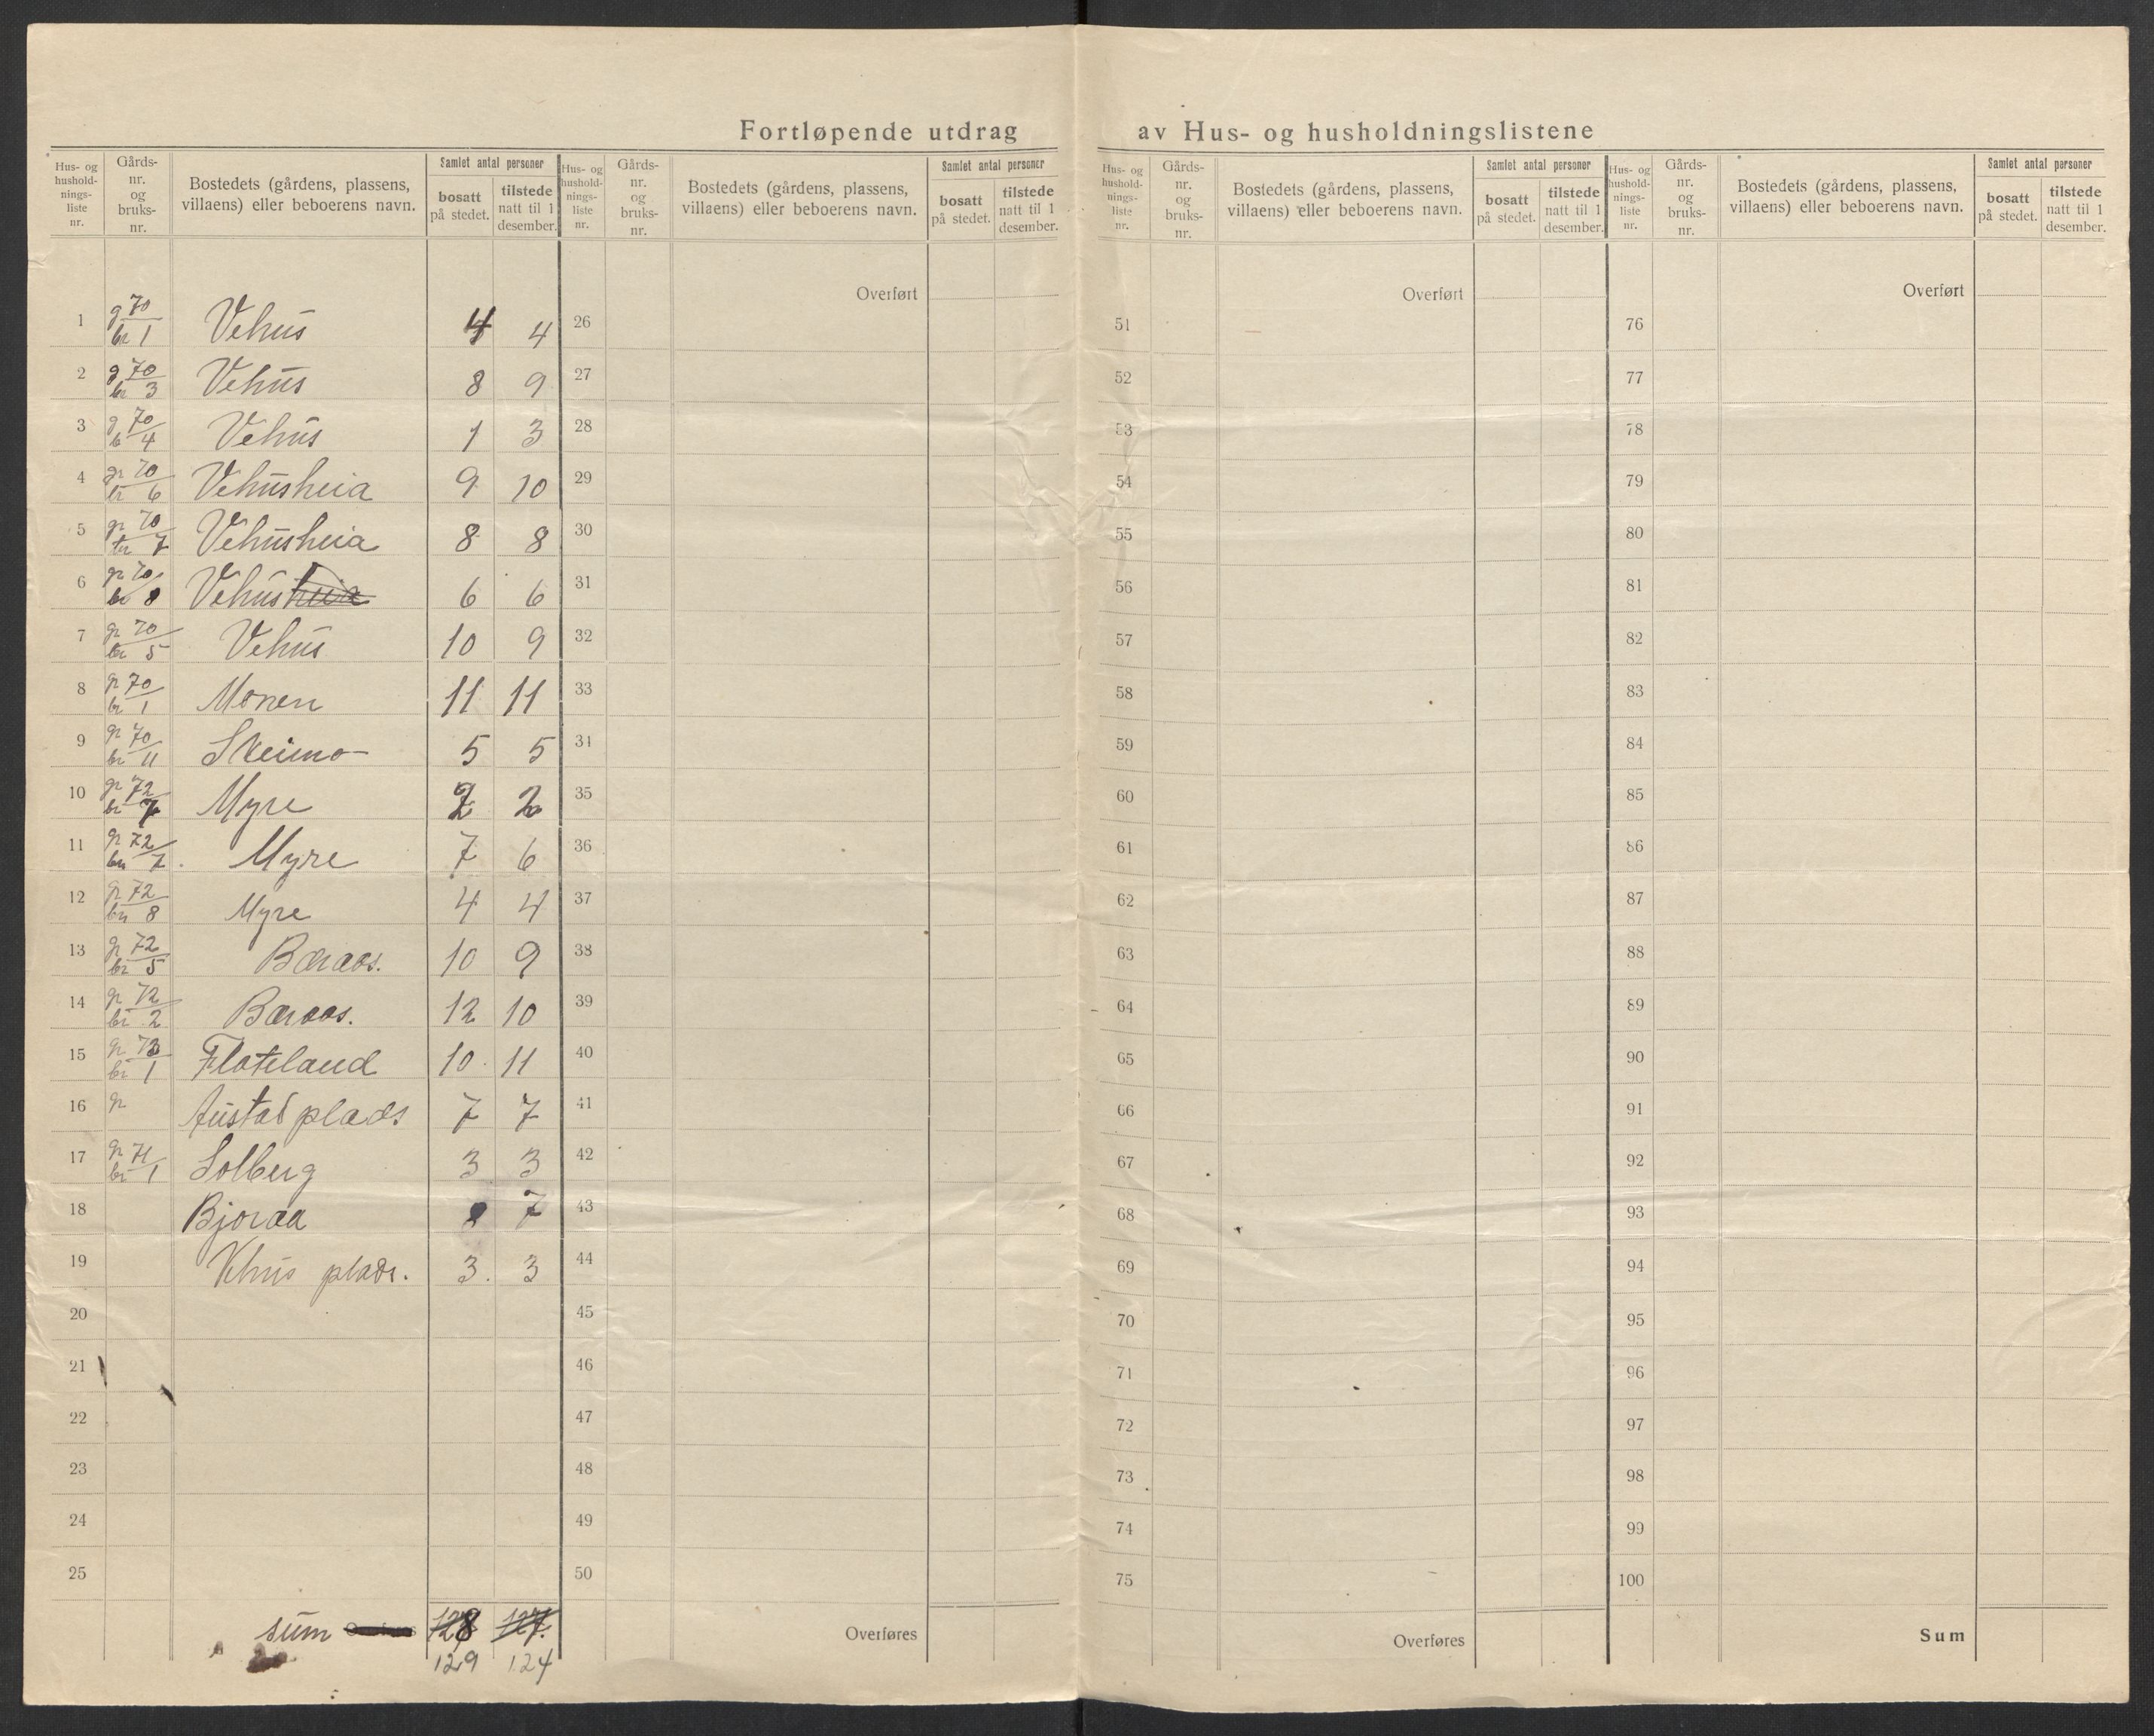 Fortløpende utdrag av Hus- og husholdningslistene
Hus- og hushold- nings- liste nr. | Gårds- nr. og bruks- nr. | Bostedets (gårdens, plassens, villaens) eller beboerens navn. | Samlet antal personer | bosatt på stedet. | tilstede natt til 1 desember.
Hus- og hushold- nings- liste nr. | Gårds- nr. og bruks- nr. | Bostedets (gårdens, plassens, villaens) eller beboerens navn. | Samlet antal personer | bosatt på stedet. | tilstede natt til 1 desember.
Hus- og hushold- nings- liste nr. | Gårds- nr. og bruks- nr. | Bostedets (gårdens, plassens, villaens) eller beboerens navn. | Samlet antal personer | bosatt på stedet. | tilstede natt til 1 desember.
Hus- og hushold- nings- liste nr. | Gårds- nr. og bruks- nr. | Bostedets (gårdens, plassens, villaens) eller beboerens navn. | Samlet antal personer | bosatt på stedet. | tilstede natt til 1 desember.
Overført Overført Overført
1 g 70 br 1 Vehus 4 4 26 51 76
2 g 70 br 3 Vehus 8 9 27 52 77
3 g 70 b 4 Vehus 1 3 28 53 78
4 gr 70 br 6 Vehusheia 9 10 29 54 79
5 gr 70 br 7 Vehusheia 8 8 30 55 80
6 gr 70 br 8 Vehusheia 6 6 31 56 81
7 gr 70 br 5 Vehus 10 9 32 57 82
8 gr 70 br 1 Monen 11 11 33 58 83
9 gr 70 br 11 Skeimo 5 5 34 59 84
10 gr 72 br 7 Myre 2 2 35 60 85
11 gr 72 br 7. Myre 7 6 36 61 86
12 gr 72 br 8 Myre 4 4 37 62 87
13 gr 72 br 5 Bæraas. 10 9 38 63 88
14 gr 72 br 2 Bæraas. 12 10 39 64 89
15 gr 73 br 1 Flateland 10 11 40 65 90
16 gr Austad plads 7 7 41 66 91
17 gr 71 br 1 Solberg 3 3 42 67 92
18 Bjoraa 7 43 68 93
19 Vehus plads. 3. 3 44 69 94
20 45 70 95
21 46 71 96
22 47 72 97
23 48 73 98
24 49 74 99
25 50 75 100
sum 128 127. Overføres Overføres Sum
129 124